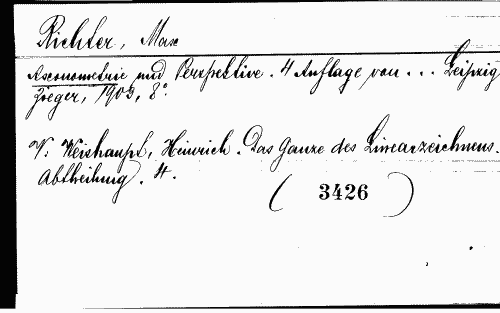 Richter, Max
Axonometrie und Perspektive. 4 Auflage von ... Leipzig
Jaeger, 1903, 8°.
V: Weishaupt, Heinrich. Das Ganze des Linearzeichnens.
Abtheilung. 4.
(3426)